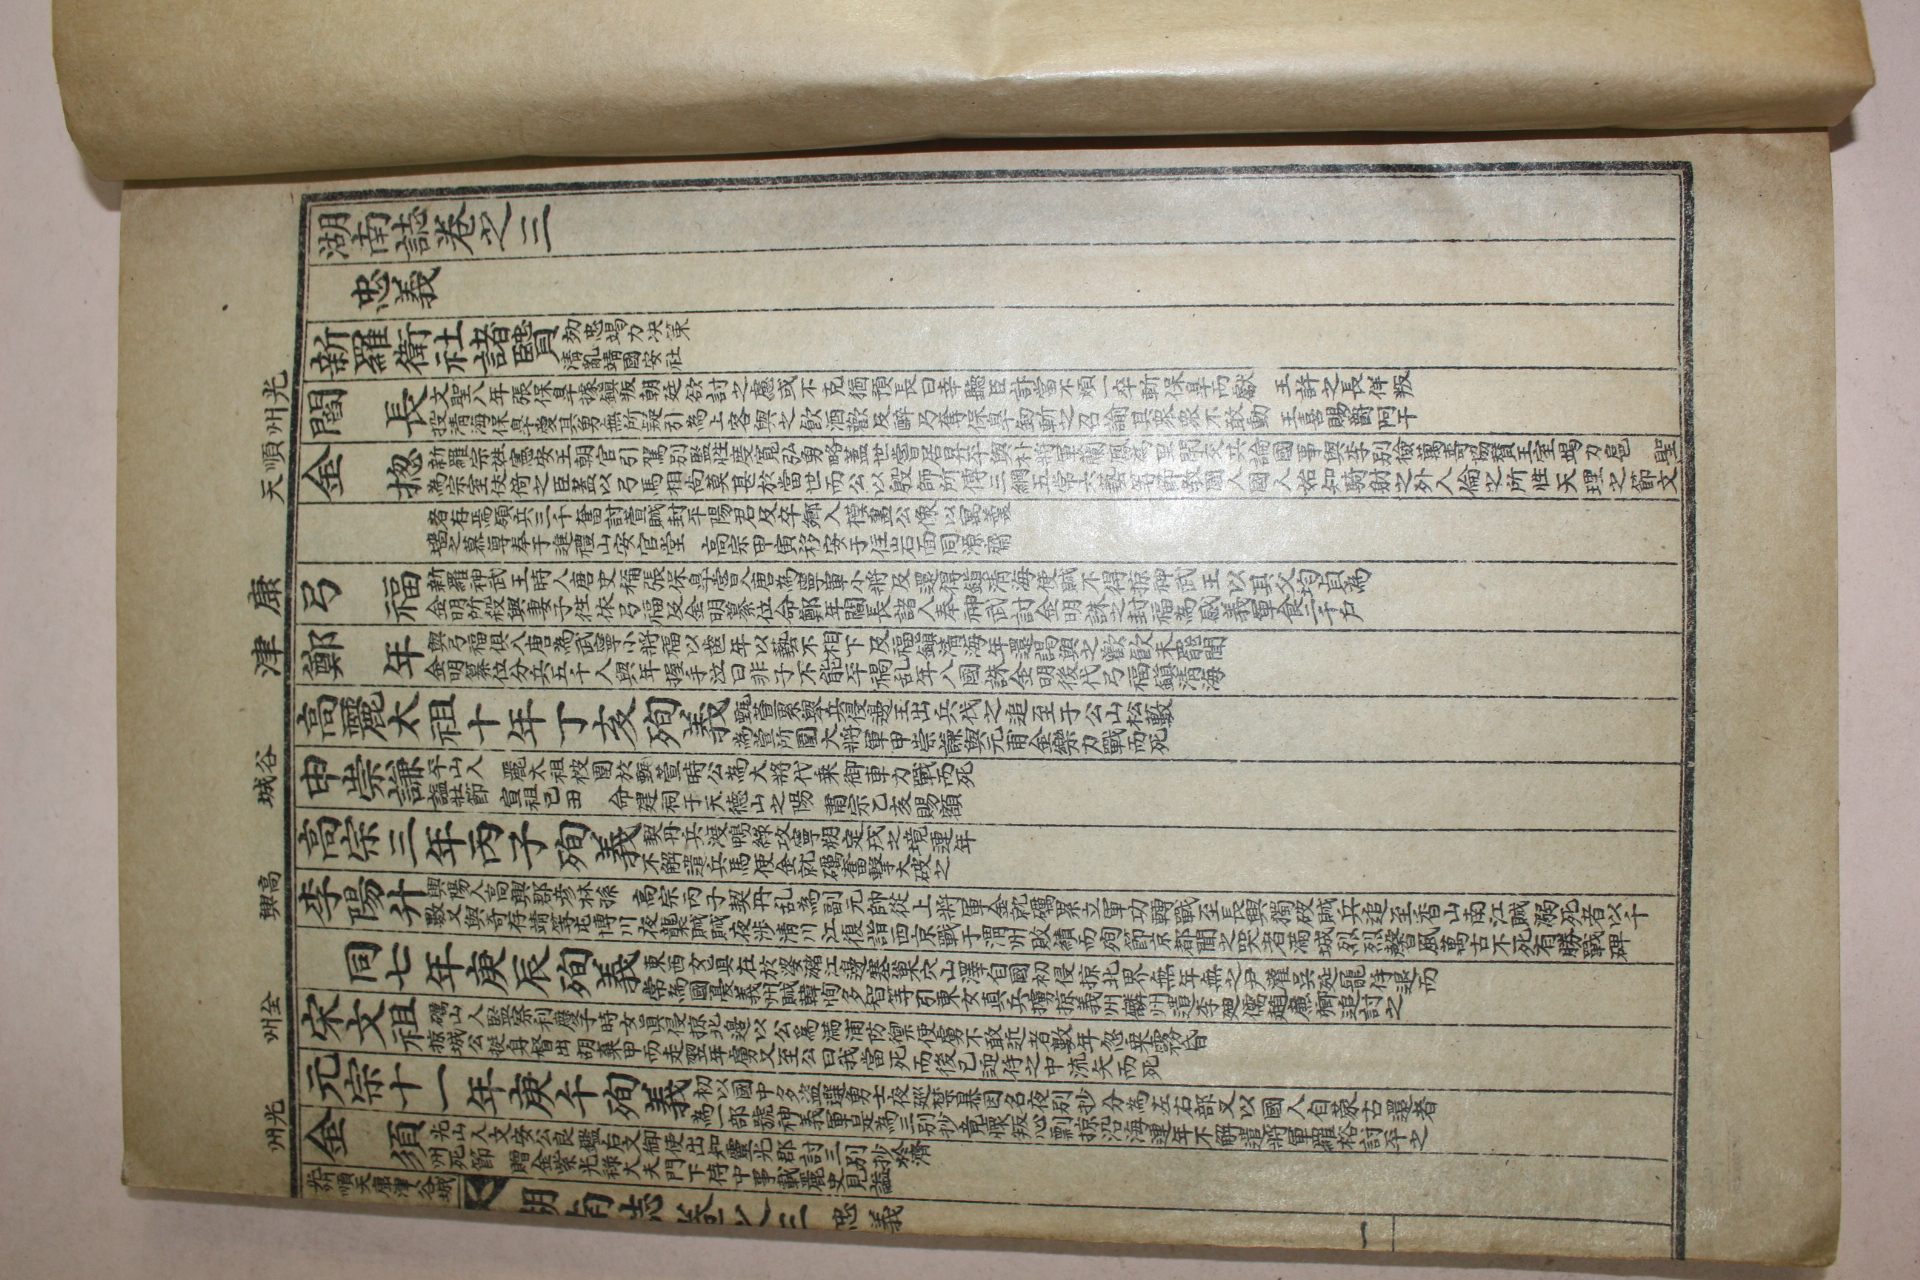 光州 順天 康津 谷城 高興 全州 光州
湖南誌卷之三
忠義
新羅衛社諸賢 効忠竭力决策
淸亂靖國安社
閻長 文聖八年張保皐據鎭叛朝廷欲討之慮或不克猶預長曰幸聽臣計當不煩一卒斬保皐而獻 王許之長佯叛
投淸海保皐愛其勇無所疑引爲上客與之飮酒歡及醉乃奪保皐釰斬之召諭其衆衆不敢動 王喜賜爵阿干
金惚 新羅宗姓憲安王朝官引駕別監性度寬弘勇略蓋世嘗居昇平與朴將軍蘭鳳爲里閈交共論國事與李別檢萬奇協贊王室竭力扈 聖
爲宗室伕倚之臣蓋以弓馬相尙莫甚於當世而公以殷師所傳三綱五常六藝等節敎國人國人始知騎射之外人倫之所性天理之節文
者存焉領兵三千奮討萱賊封平陽君及卒鄕人模畫公像以寓羹
墻之慕尊奉于進禮山安官堂 高宗甲寅移安于住岩面同源齋
弓福 新羅神武王時人唐史稱張保皐嘗入唐爲寧軍小將及還得鎭淸海使賊不得掠神武王以其父均貞爲
金明所殺與妻子徃依弓福及金明纂位命鄭年閻長諸人奉神武討金明誅之封福爲感義軍食二千戶
鄭年 與弓福俱入唐爲武寧小將福以齒年以藝不相下及福鎭淸海年還謁與之歡飮未罷聞
金明纂位分兵五千人與年握手泣曰非子不能平禍乱年入國誅金明後代弓福鎭淸海
高麗太祖十年丁亥殉義 甄萱累擧兵侵邊王出兵伐之追至于公山松藪
爲萱所圍大將軍申崇謙與元甫金樂力戰而死
申崇謙 平山人 麗太祖被圍於甄萱時公爲大將代乘御車力戰而死
謚壯節 宣祖己丑 命建祠于天德山之陽 肅宗乙亥賜額
高宗三年丙子殉義 契丹兵渡鴨綠攻寧朔定戎之境連年
不解遣兵馬使金就礪奮擊大破之
李陽升 興陽人高興郡彥林孫 高宗丙子契丹乱爲副元帥從上將軍金就礪累立軍功轉戰至長興獨破賊兵追至香山南江賊溺死者以千
數又與奇存靖等屯博川夜襲賊賊夜涉淸川江復詣西京戰于渭州敗績而殉節京都聞之哭者滿城烈烈馨風萬古不死有勝戰碑
同七年庚辰殉義 東西女眞在於婆瀦江邊塞巢穴山澤自國初侵掠北界無年無之尹瓘吳延寵侍退而
常爲國憂義州賊韓恂多智等引東女眞兵擄掠義州麟州遣李廸儒趙廉卿追討之
宋文祖 礪山人監察利廕子時女眞侵掠北邊以公爲滿浦防禦使虜不敢近者數年忽乘霧昏
掠城公挺身督出 胡棄甲而走翌年虜又至公曰我當死而後已迎待之中流矢而死
元宗十一年庚午殉義 初以國中多盜選勇士夜廵禁暴因名夜別抄分爲左右部又以國人自蒙古還者
爲一部號神義軍是爲三別抄竟懷叛心剽掠沿海連年不解遣將軍羅裕討平之
金須 光山人文安公良鑑后文御使出知靈光郡討三別抄於濟
州死節 贈金紫光祿大夫門下侍中事載麗史見謚
光州順天康津谷城
湖南誌 卷之三 忠義 一